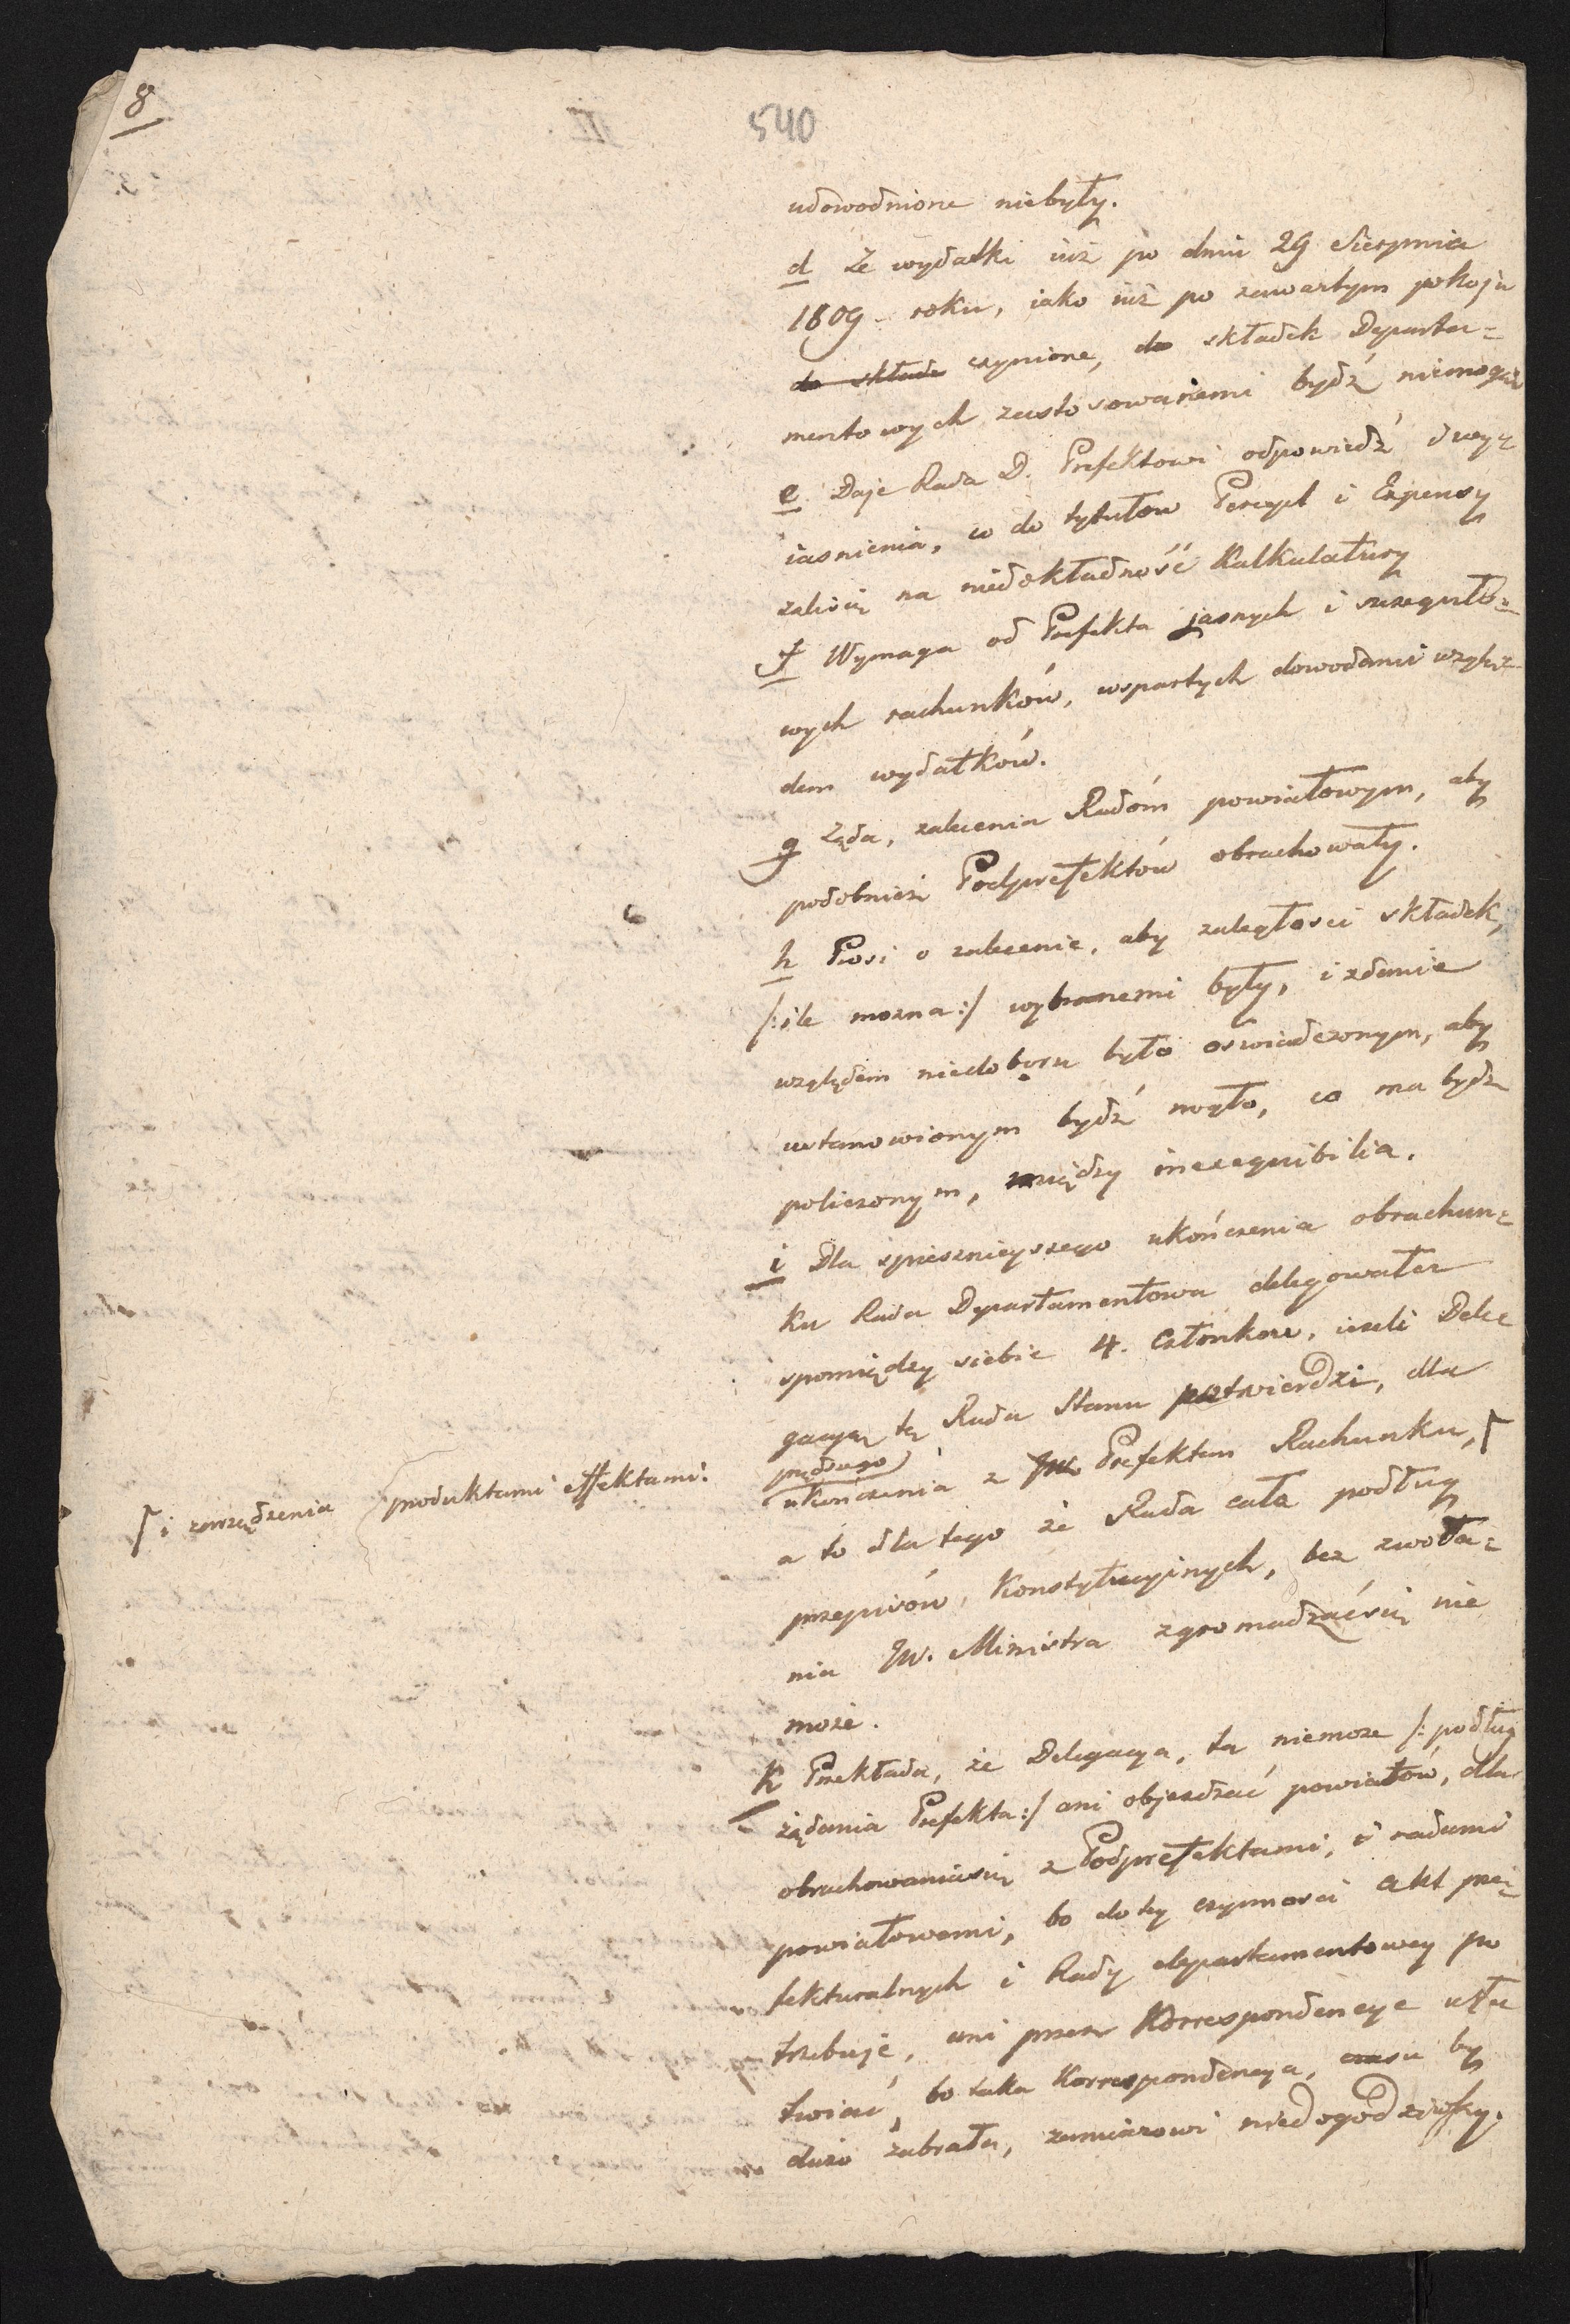 8
540
udowodnione niebyły.
d Że wydatki iuż po dniu 29 Sierpnia
1809 roku, iako iuż po zawartym pokoju
do składe czynione, do składek Departa-
mentowych zastosowanemi bydź niemogą
e Daje Rada D. Prefektowi odpowiedź i wyy
iasnienia, co do tytułow Percept i Expensy
zalisię na niedokładność Kalkulatury
f Wymaga od Prefekta jasnych i szczeguło-
wych rachunków, wspartych dowodami wzglę-
dem wydatków.
g Żąda, zalecenia Radóm powiatowym, aby
podobnież Podprefektów obrachowały.
h Prosi o zalecenie, aby zaległosci składek,
/:ile mozna:/ wybranemi były, i zdanie
względem niedoboru było oświadczonym, aby
ustanowionym bydź mogło, co ma bydź
policzonym, między inexequibilia.
i Dla spieszniejszego ukończenia obrachun-
ku Rada Departamentowa delegowała
spomiędzy siebie 4. Członkow, iezeli Dele
gacyą tę Rada Stanu potwierdzi, dla
prędszego
ukończenia z JW. Prefektem Rachunku, ⌈
⌈ i zarządzenia produktami effektami:
a to dla tego że Rada cała podług
przepisów, Konstytucyinych, bez zwoła-
nia JW. Ministra zgromadzaćsię nie
może.
k Przekłada, że Delegacya, ta niemoze /: podług
żądania Prefekta:/ ani objezdzać powiatów, dla
obrachowaniasię z Podprefektami, i radami
powiatowemi, bo do tey czynnosci akt pre-
fekturalnych i Rady departamentowey po
trzebuje, ani przez Korrespondencye uła
twiać, bo taka Korrespondencya, czasu by
dużo zabrała, zamiarowi niedogodziłaby.